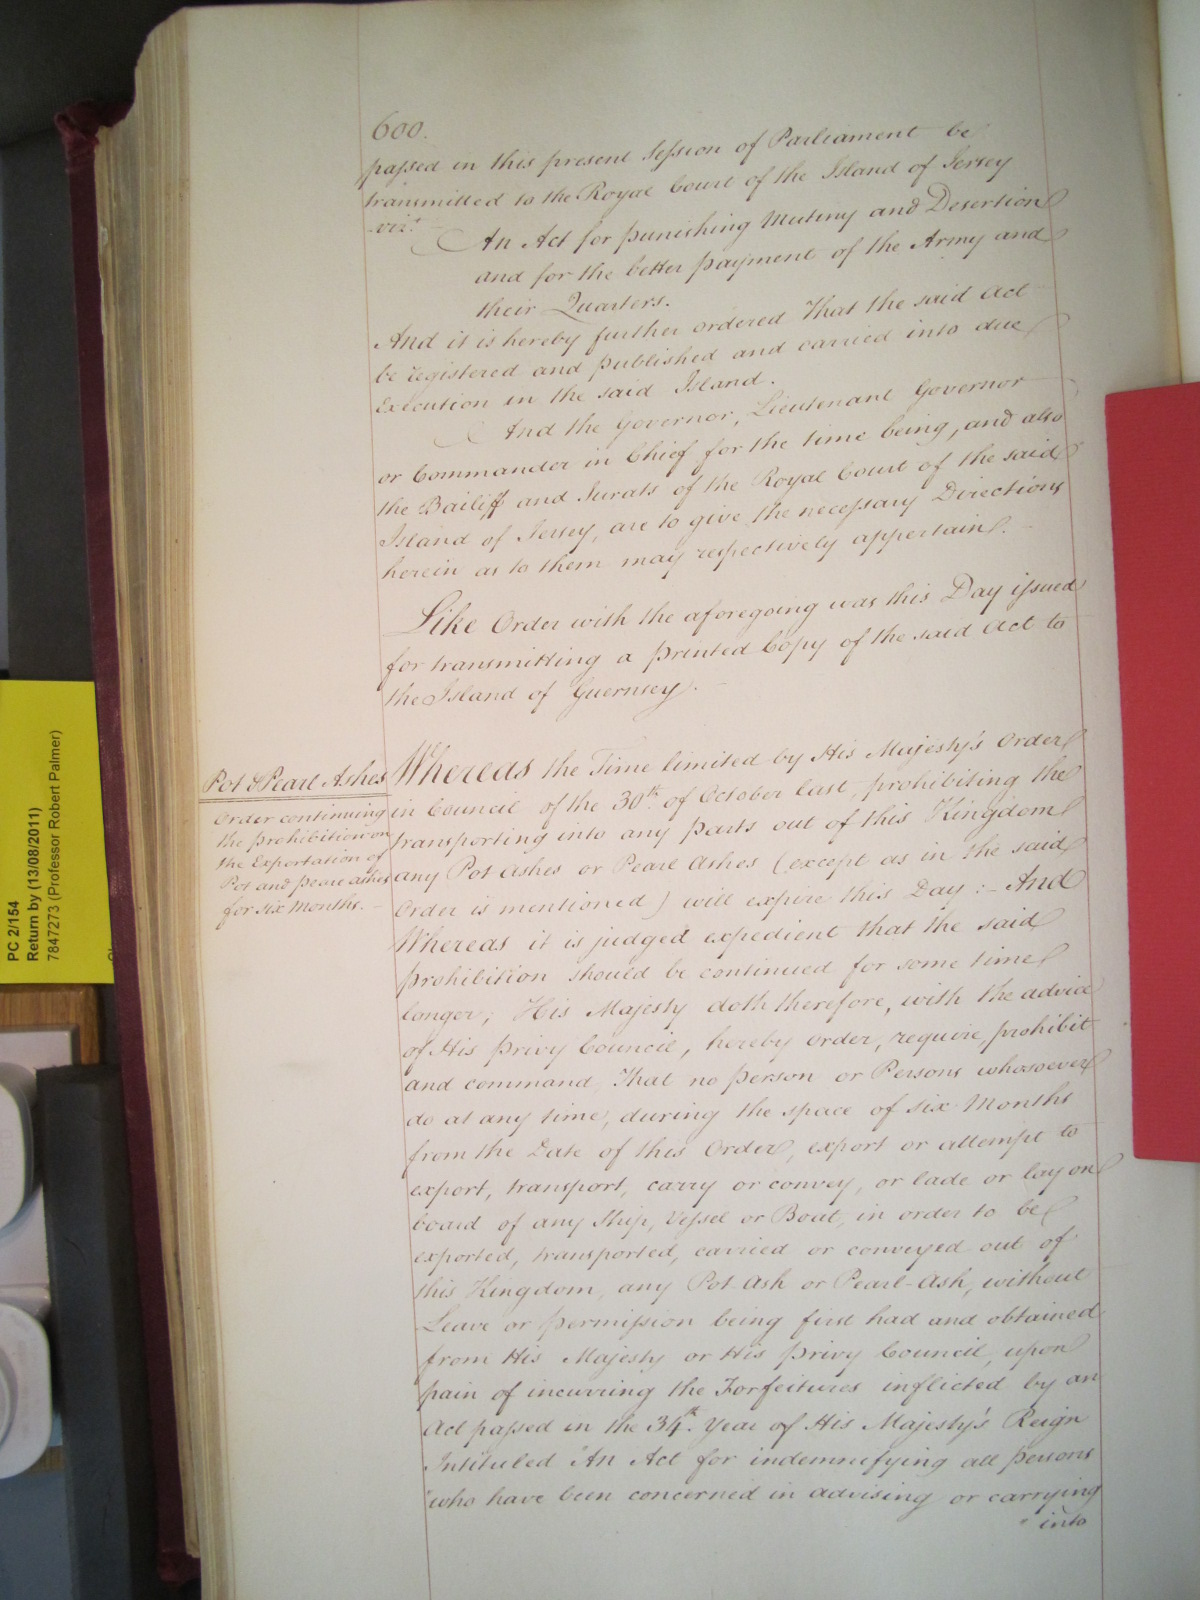 600.
passed in this present Session of Parliament be
transmitted to the Royal Court of the Island of Jersey
viz.t
An Act for punishing Mutiny and Desertion
and for the better payment of the Army and
their Quarters.
And it is hereby further ordered That the said Act
be registered and published and carried into due
Execution in the said Island.
And the Governor, Lieutenant Governor
or Commander in Chief for the time being, and also
the Bailiff and Jurats of the Royal Court of the said
Island of Jersey, are to give the necessary Directions
herein as to them may respectively appertain.
Like Order with the aforegoing was this Day issued
for transmitting a printed Copy of the said Act to
the Island of Guernsey.
Pot & Pearl Ashes
Order continuing
the prohibition on
the Exportation of
Pot and pearl ashes
for six Months.
Whereas the Time limited by His Majesty's Order
in Council of the 30th. of October last, prohibiting the
transporting into any parts out of this Kingdom
any Pot Ashes or Pearl Ashes (except as in the said
Order is mentioned) will expire this Day :- And
Whereas it is judged expedient that the said
prohibition should be continued for some time
longer; His Majesty doth therefore, with the advice
of His Privy Council, hereby order, require, prohibit
and command, That no person or Persons whosoever
do at any time, during the space of six Months
from the Date of this Order, export or attempt to
export, transport, carry or convey, or lade or lay on
board of any Ship, Vessel or Boat, in order to be
exported, transported, carried or conveyed out of
this Kingdom, any Pot Ash or Pearl-Ash, without
Leave or permission being first had and obtained
from His Majesty or His privy Council, upon
pain of incurring the Forfeitures inflicted by an
Act passed in the 34th. Year of His Majesty's Reign
Intituled "An Act for indemnifying all persons
"who have been concerned in advising or carrying
" into
PC 2/154
Return by (13/08/2011)
7847273 (Professor Robert Palmer)